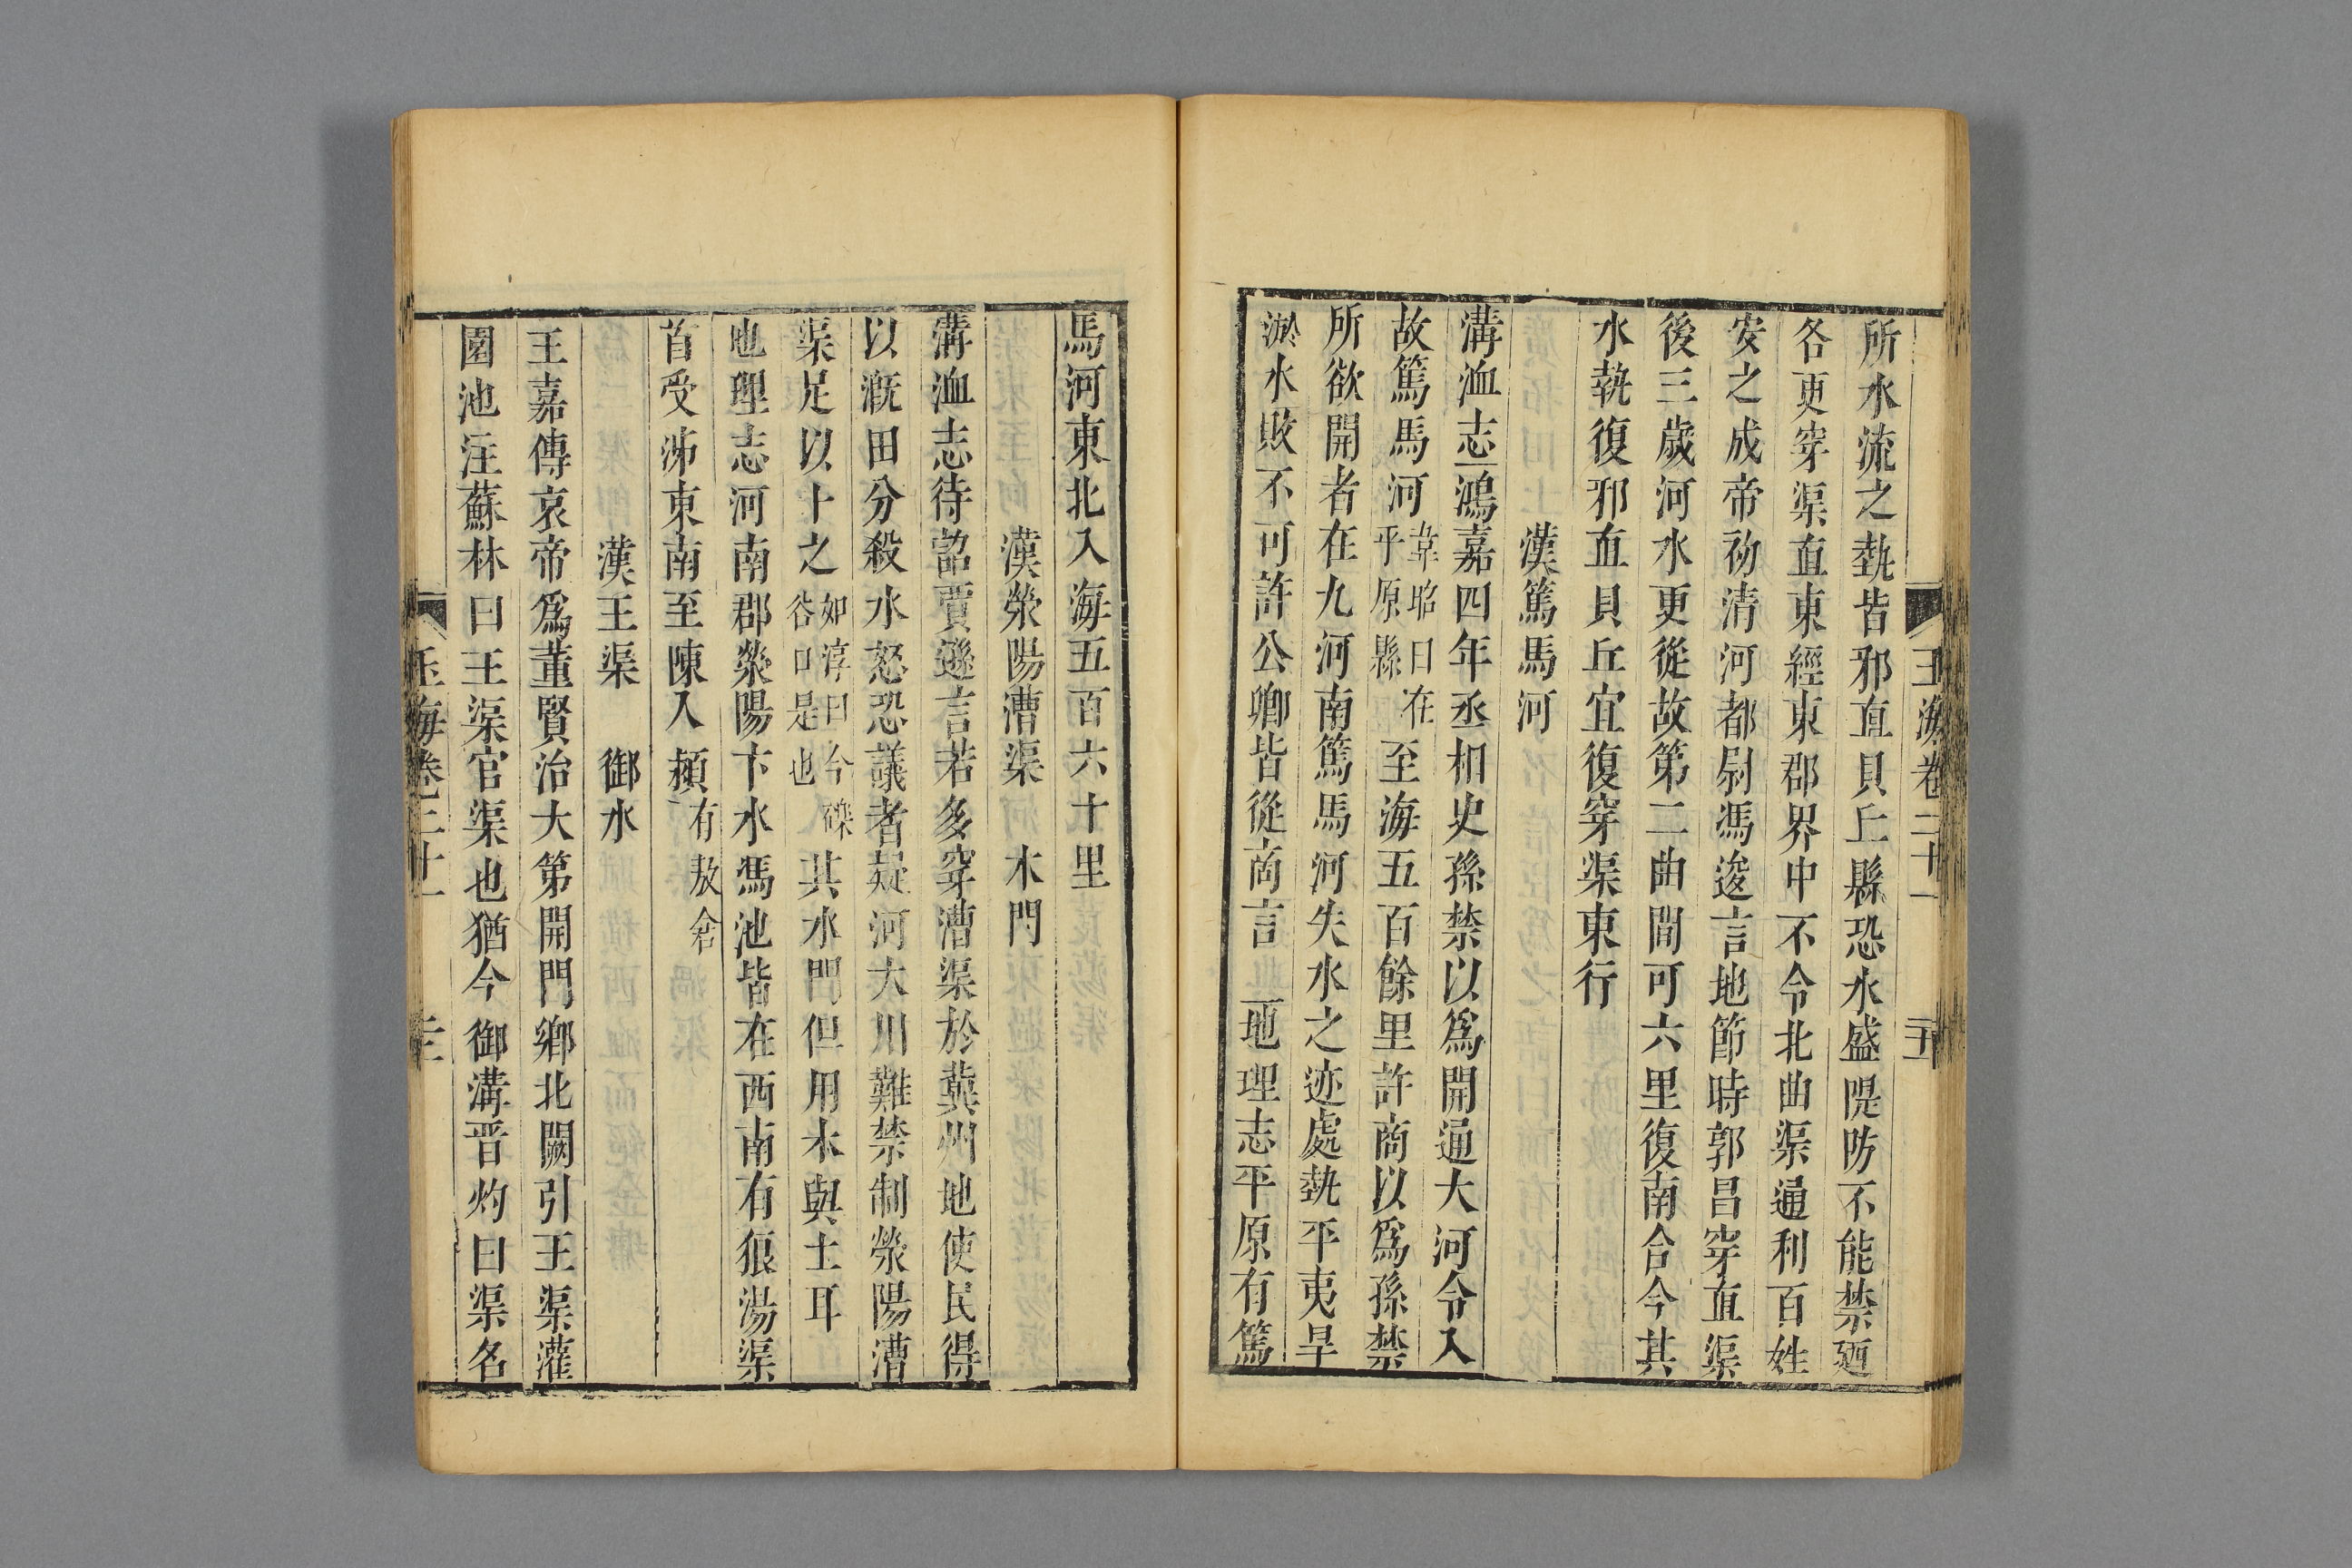 玉海卷二十一
所水流之埶皆邪直貝丘縣恐水盛隄防不能禁廼
各更穿渠直東經東郡界中不令北曲渠通利百姓
安之成帝初清河都尉馮逡言地節時郭昌穿直渠
後三歲河水更從故第二曲間可六里復南合今其
水埶復邪直貝丘宜復穿渠東行
漢篤馬河
溝洫志鴻嘉四年丞相史孫禁以爲開通大河令入
故篤馬河韋昭曰在平原縣至海五百餘里許商以爲孫禁
所欲開者在九河南篤馬河失水之迹處埶平夷旱
淤水敗不可許公卿皆從商言 地理志平原有篤
馬河東北入海五百六十里
漢滎陽漕渠 水門
溝洫志待詔賈遜言若多穿漕渠於冀州地使民得
以漑田分殺水怒恐議者疑河大川難禁制滎陽漕
渠足以卜之如淳曰今礫谿口是也其水門但用木與土耳
地理志河南郡滎陽卞水馮池皆在西南有狼湯渠
首受泲東南至陳入潁有敖倉
漢王渠 御水
王嘉傳哀帝爲董賢治大第開門鄉北闕引王渠灌
園池注蘇林曰王渠官渠也猶今御溝晋灼曰渠名
玉海卷二十一